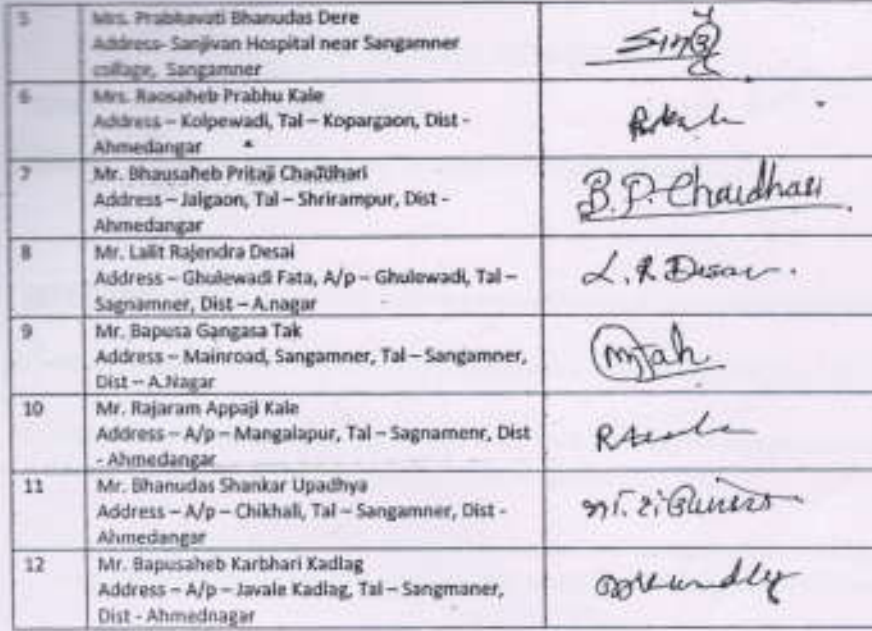 5
Mrs. Prabhavati Bhanudas Dere
Address- Sanjivan Hospital near Sangamner
collage, Sangamner
6
Mrs. Raosaheb Prabhu Kale
Address – Kolpewadi, Tal – Kopargaon, Dist -
Ahmedangar
7
Mr. Bhausaheb Pritaji Chaudhari
Address – Jalgaon, Tal – Shrirampur, Dist -
Ahmedangar
B.P. Chaudhari
8
Mr. Lalit Rajendra Desai
Address – Ghulewadi Fata, A/p – Ghulewadi, Tal –
Sagnamner, Dist – A.nagar
L. R Desai
9
Mr. Bapusa Gangasa Tak
Address – Mainroad, Sangamner, Tal – Sangamner,
Dist – A.Nagar
10
Mr. Rajaram Appaji Kale
Address – A/p – Mangalapur, Tal – Sagnamenr, Dist
- Ahmedangar
11
Mr. Bhanudas Shankar Upadhya
Address – A/p – Chikhali, Tal – Sangamner, Dist -
Ahmedangar
12
Mr. Bapusaheb Karbhari Kadlag
Address – A/p – Javale Kadlag, Tal – Sangmaner,
Dist - Ahmednagar